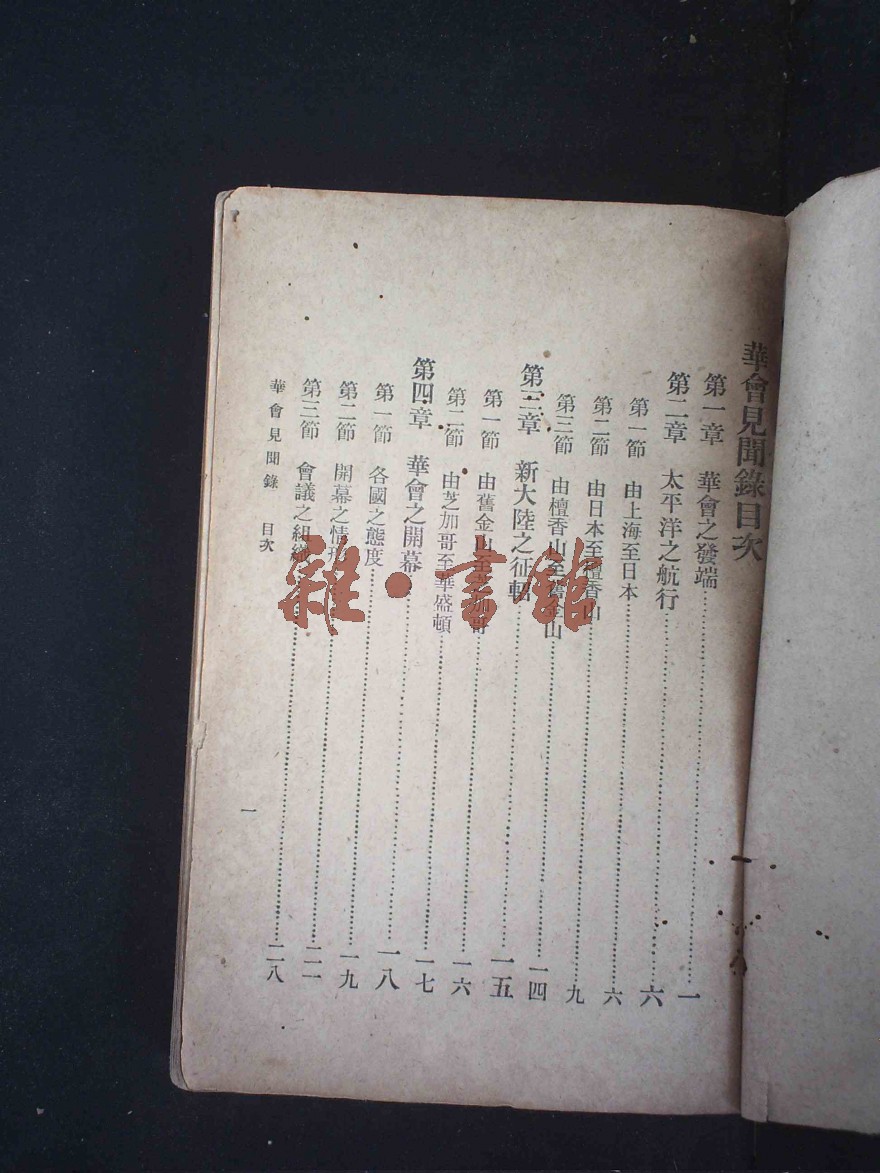 華會見聞錄目次
第一章 華會之發端……一
第二章 太平洋之航行……六
第一節 由上海至日本……六
第二節 由日本至檀香山……九
第三節 由檀香山至舊金山……一四
第三章 新大陸之征軺……一五
第一節 由舊金山至芝加哥……一六
第二節 由芝加哥至華盛頓……一七
第四章 華會之開幕……一八
第一節 各國之態度……一九
第二節 開幕之情形……二一
第三節 會議之組織……二八
華會見聞錄 目次
一
雜·書館